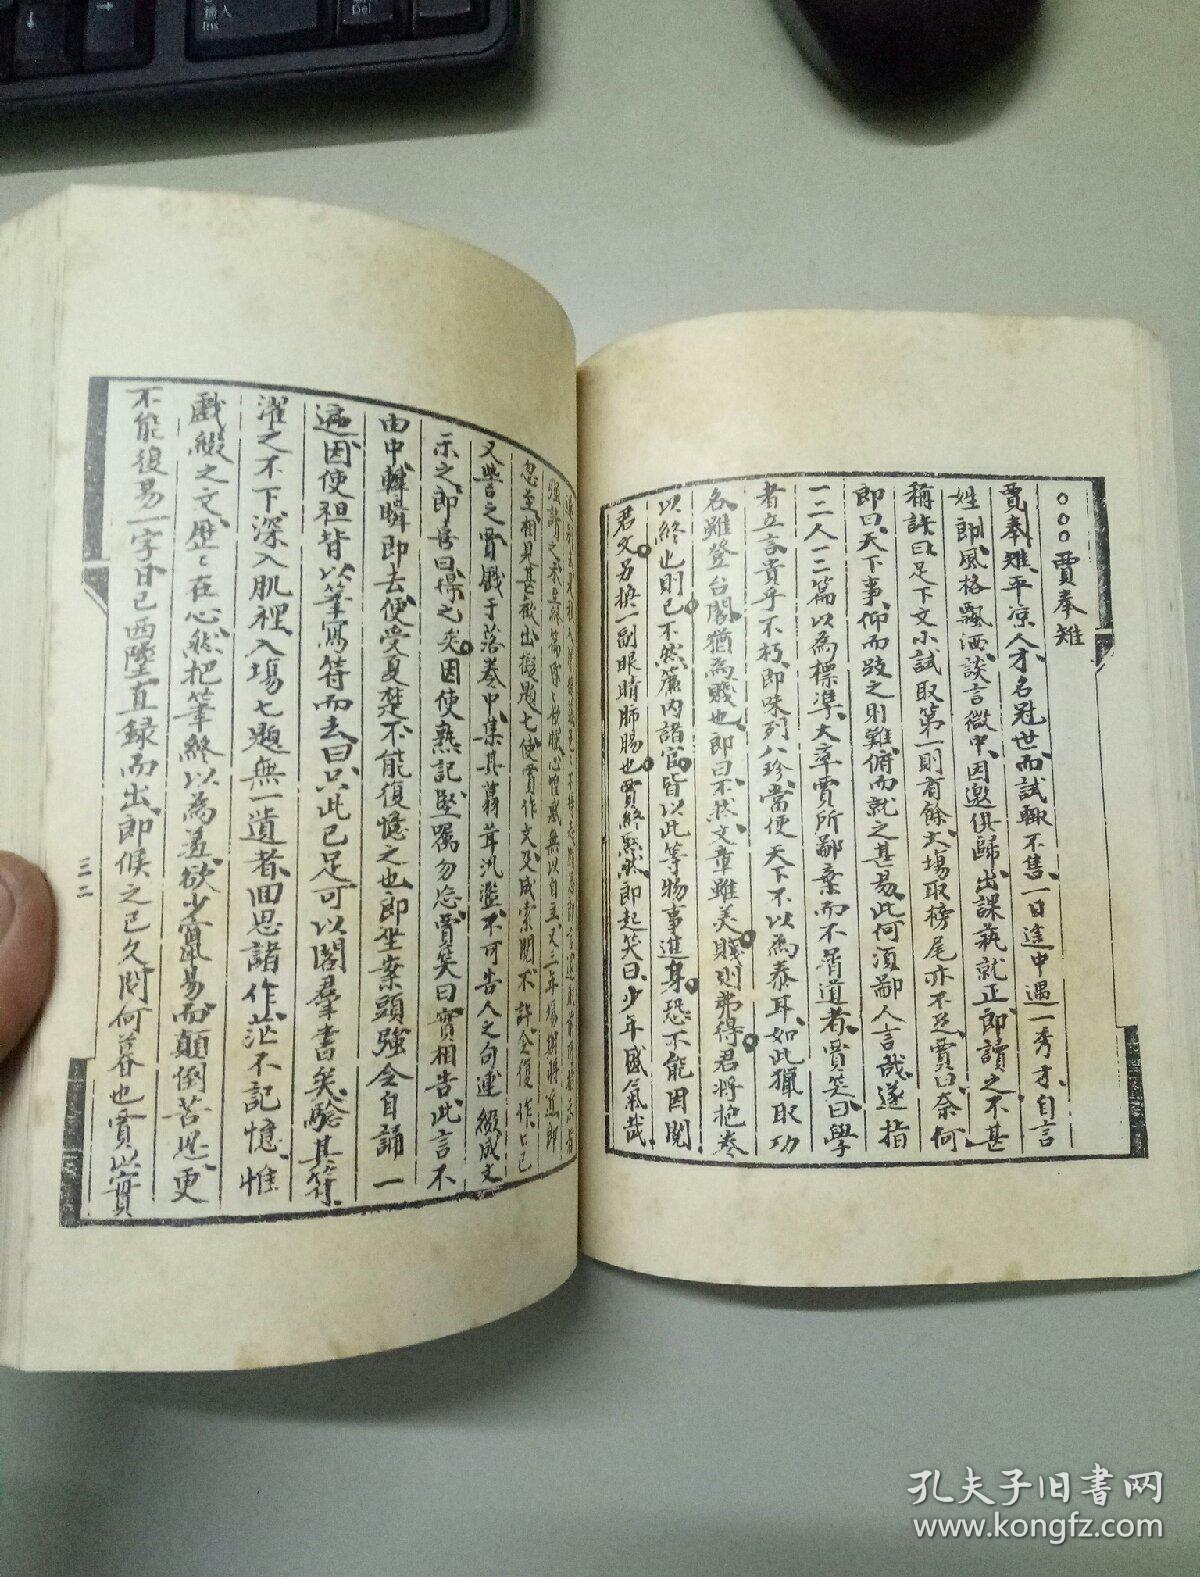 ○○○賈奉雉
賈奉雉平凉人才名冠世而試輒不售一日途中遇一秀才自言
姓郎風格飄洒談言微中因邀俱歸出課蓺就正郎讀之不甚
稱許曰足下文小試取第一則有餘大場取榜尾亦不足賈曰奈何
郎曰天下事仰而跂之則難俯而就之甚易此何須鄙人言哉遂指
一二人一二篇以為標準大率賈所鄙棄而不屑道者賈笑曰學
者立言貴乎不朽即味列八珍當使天下不以為泰耳如此獵取功
名雖登台閣猶為賤也郎曰不然文章雖美賤則弗得君將抱卷
以終也則已不然簾內諸官皆以此等物事進身恐不能因閱
君文另換一副眼睛肺腸也賈終默然郎起笑曰少年盛氣哉
忽至相見甚歡出擬題七使賈作文又
又訾之賈戲于落卷中集其蕪茸汎濫不可告人之句連綴成文
示之郎喜曰得之矣因使熟記堅囑勿忘賈笑曰實相告此言不
由中轉瞬即去便受夏楚不能復憶之也郎坐案頭強令自誦一
遍因使袒背以筆寫符而去曰只此已足可以閣羣書矣驗其符
濯之不下深入肌裡入場七題無一遺者回思諸作茫不記憶惟
戲綴之文歷々在心然把筆終以為羞欲少竄易而顛倒苦思更
不能復易一字日已西墜直録而出郎候之已久問何暮也賈以實
三二
孔夫子旧书网
www.kongfz.com